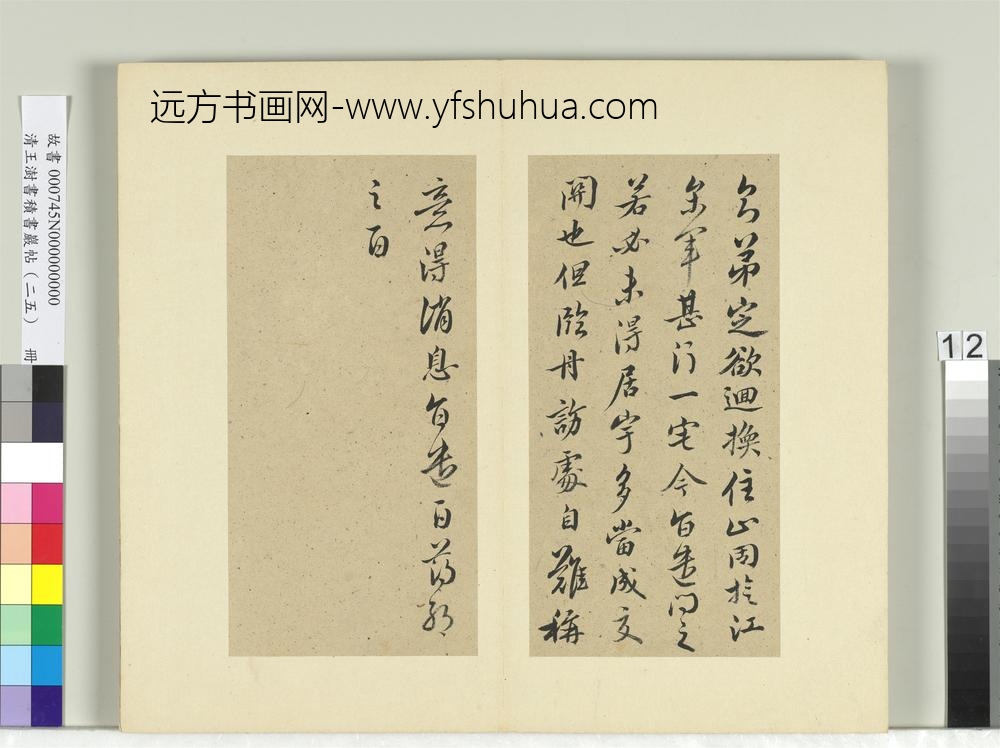 远方书画网-www.yfshuhua.com
故書 000745N000000000
清王澍書積書巖帖(二五) 冊
12
弟定欲迴換住止周旋江
軍甚 一宅今 遣問之
若必未得居宇多當成交
開也但臨 訪處自難稱
意得消息 遣 百藥
之百